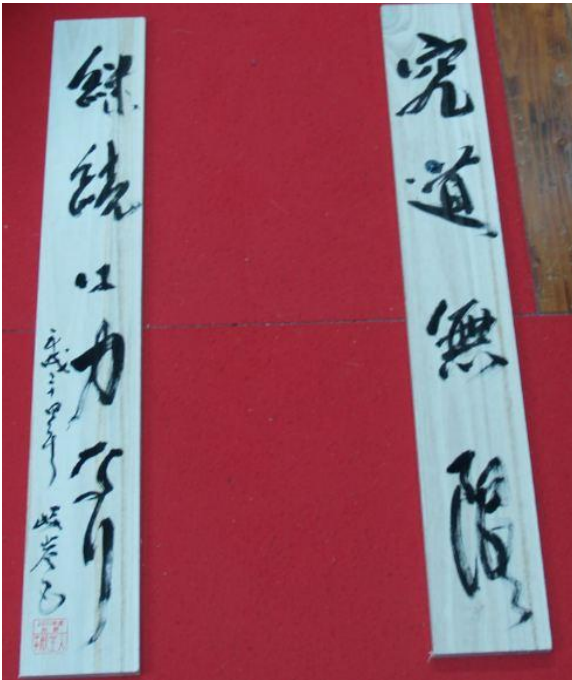 究道無限
継続は力なり
平成二十四年